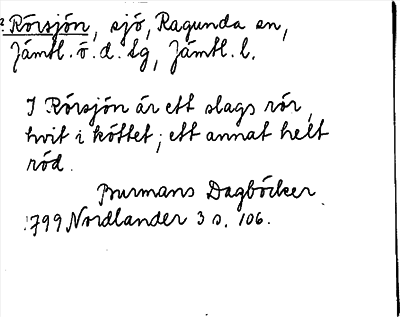 ? Rörsjön, sjö, Ragunda sn,
Jämtl. ö. d. lg, Jämtl. l.
I Rörsjön är ett slags rör,
hvit i köttet; ett annat helt
röd.
Burmans Dagböcker
1799 Nordlander 3 s. 106.